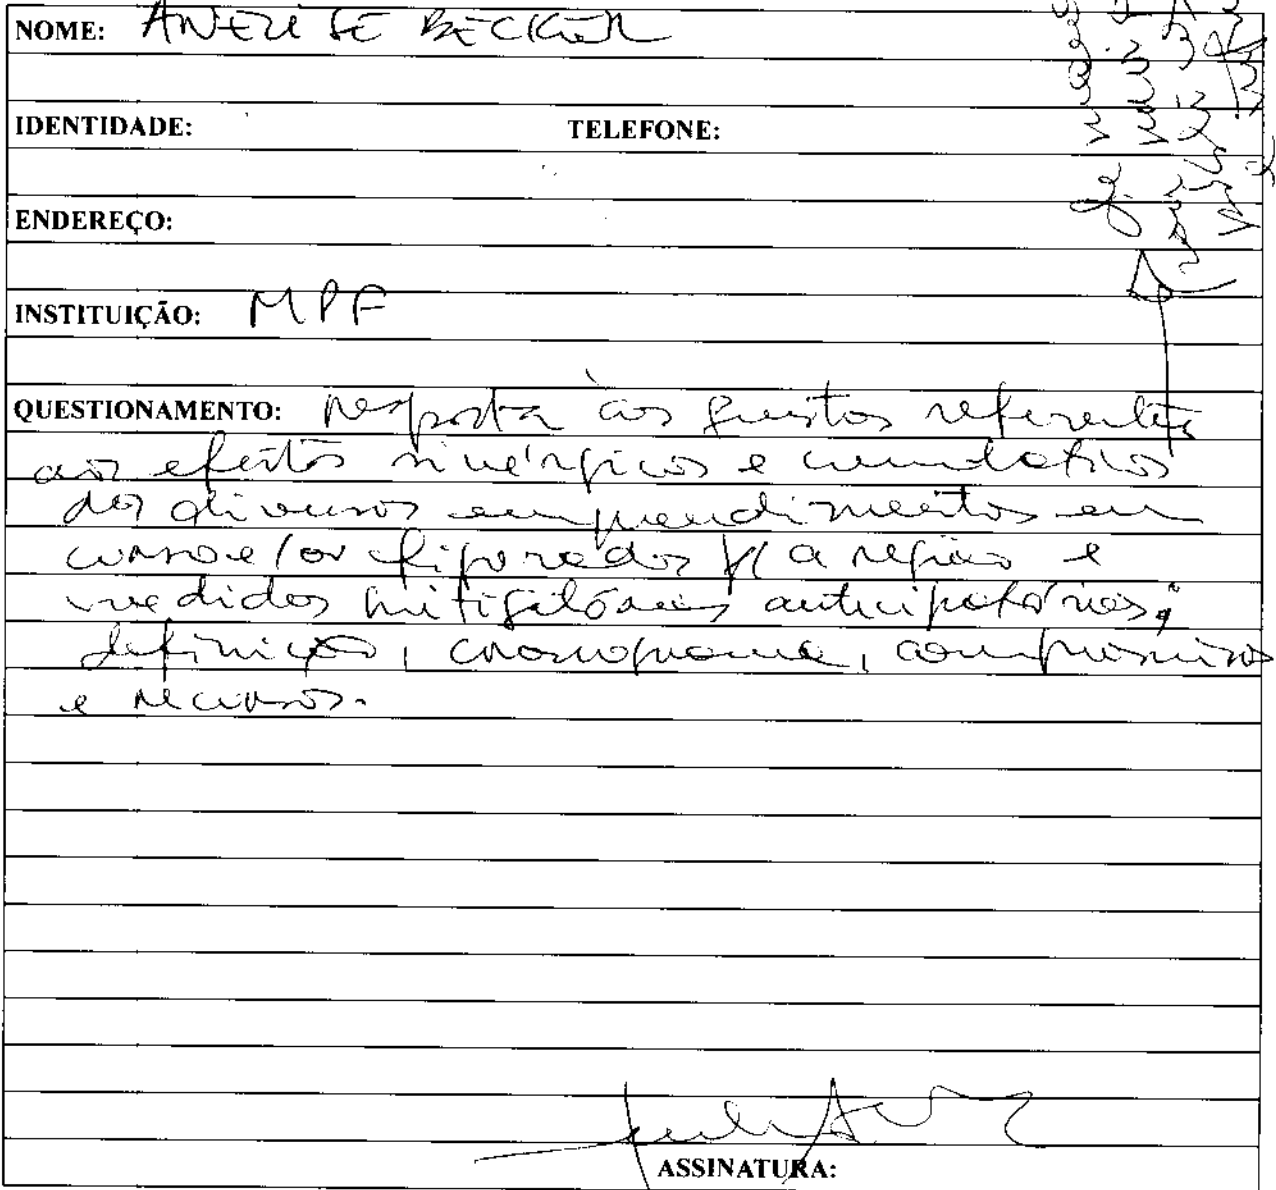 NOME: ANELISE BECKER
IDENTIDADE: TELEFONE:
ENDEREÇO:
INSTITUIÇÃO: MPF
QUESTIONAMENTO: Resposta aos quesitos referentes
aos efeitos sinérgicos e cumulativos
dos diversos empreendimentos em
curso e/ou p/ a região e
medidas mitigatórias antecipatórias,
definição, cronograma, compromissos
e recursos.
ASSINATURA: